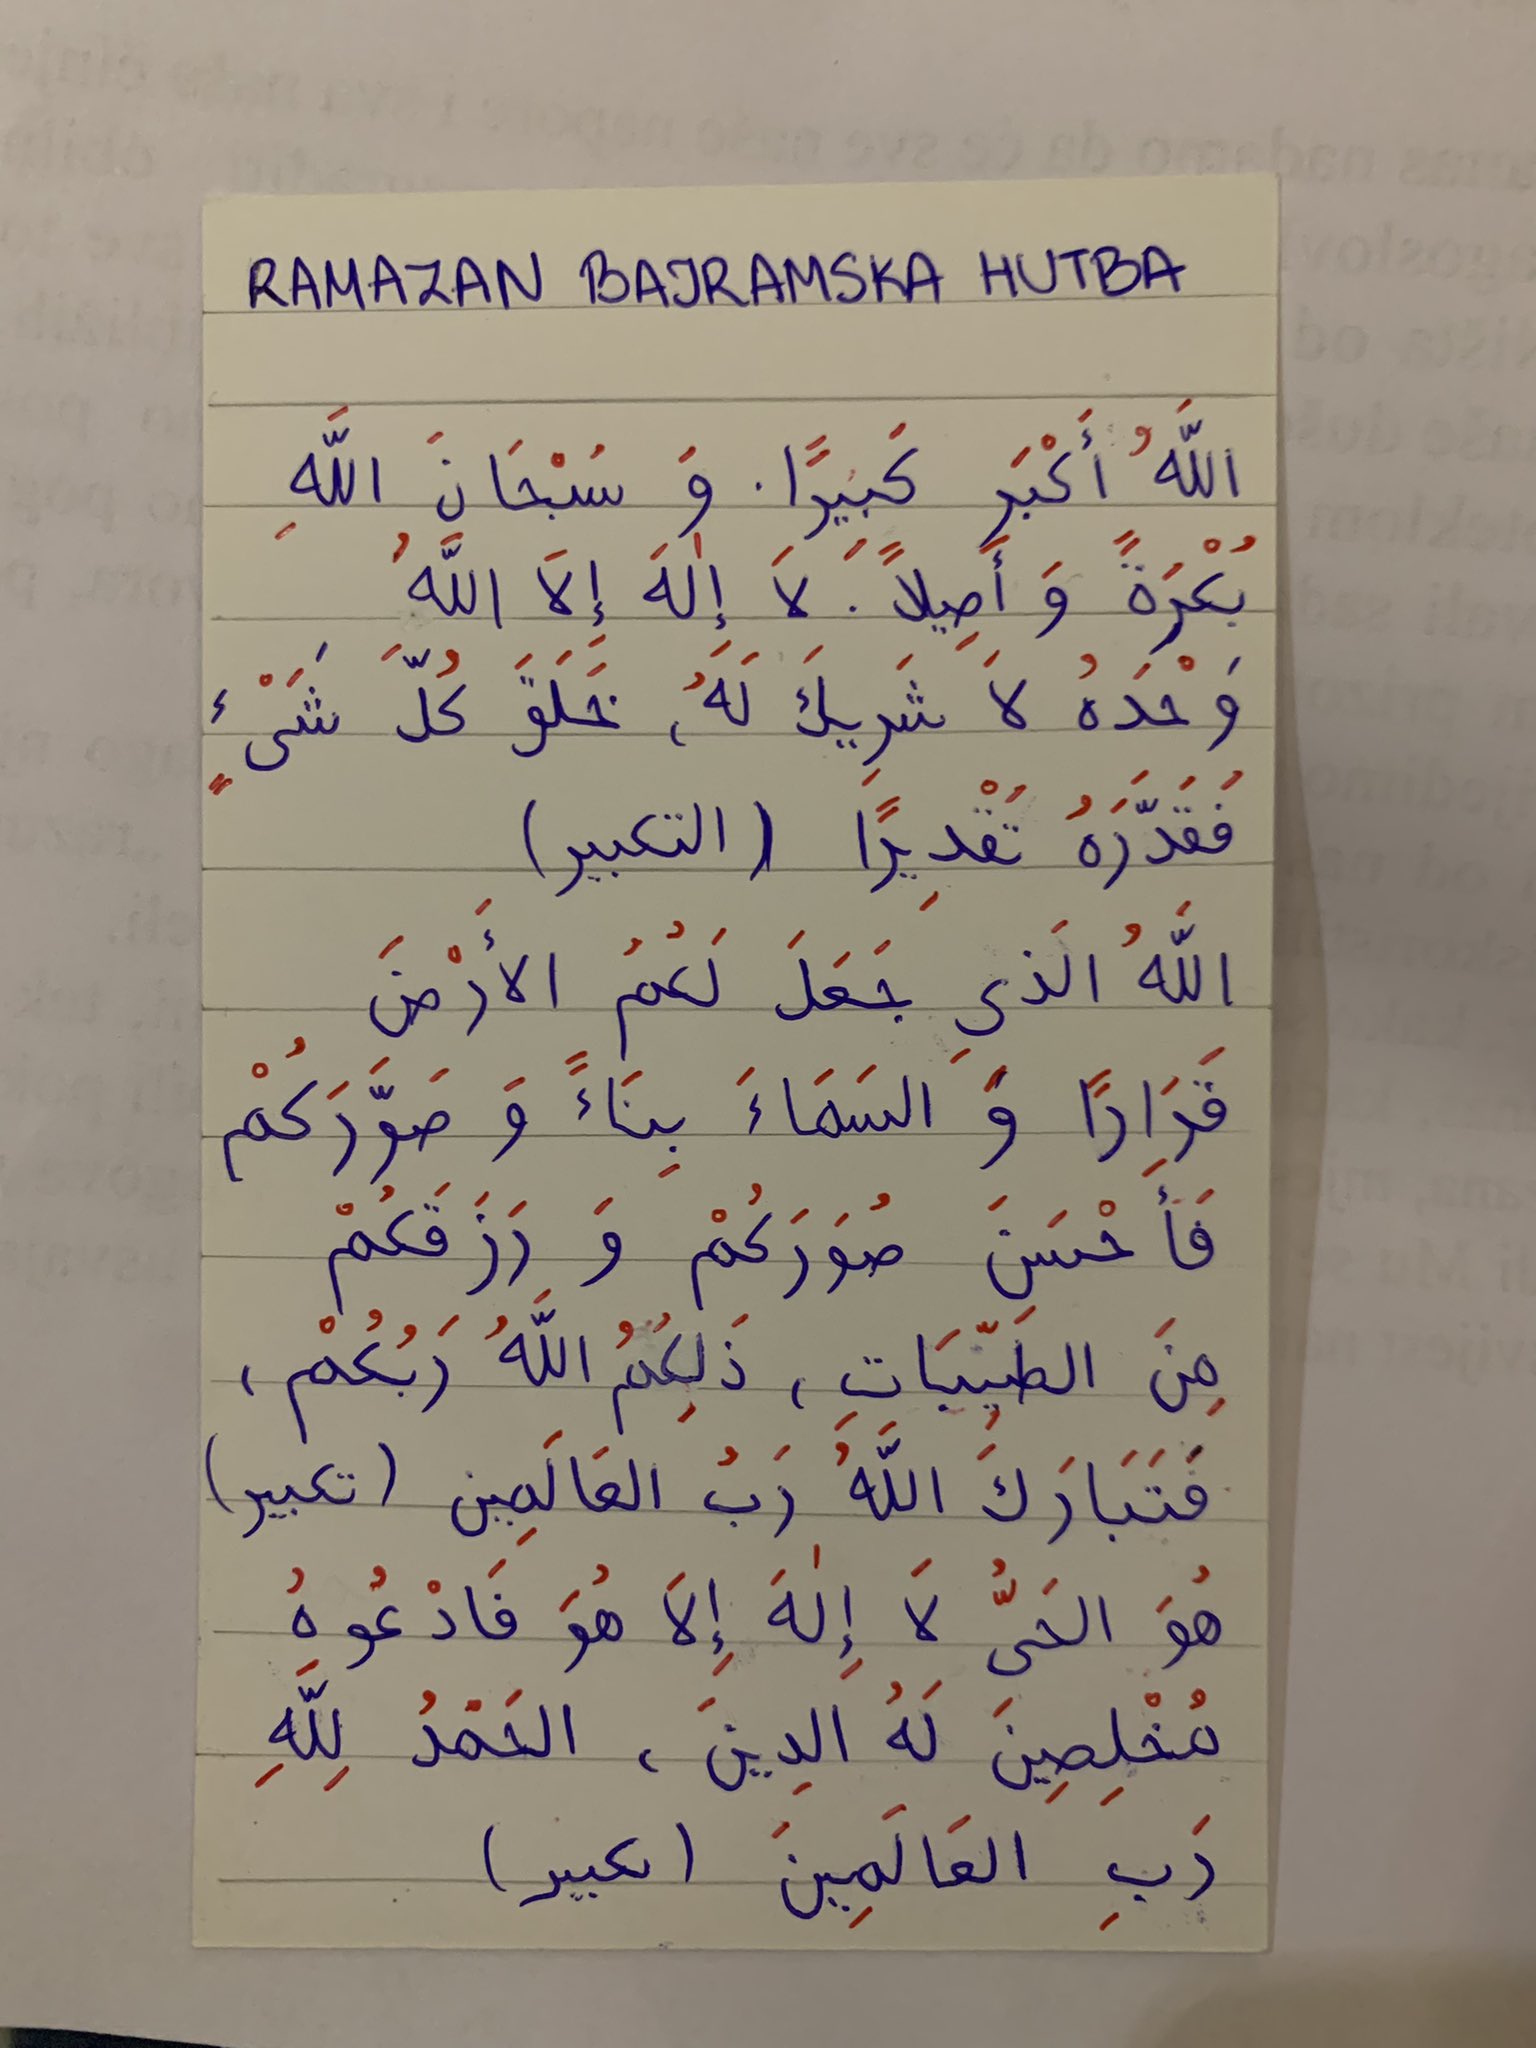 RAMAZAN BAJRAMSKA HUTBA
اللَّهُ أَكْبَر كَبِيرًا. وَ سُبْحَانَ اللَّهِ
بُكْرَةً وَ أَصِيلاً. لاَ إِلٰهَ إِلاَ اللَّهُ
وَحْدَهُ لاَ شَرِيكَ لَهُ، خَلَقَ كُلَّ شَىْءٍ
فَقَدَّرَهُ تَقْدِيرًا (التكبير)
اللَّهُ الَذِى جَعَلَ لَكُمُ الأَرْضَ
قَرَارًا وَ السَمَاءَ بِنَاءً وَ صَوَّرَكُمْ
فَأَحْسَنَ صُوَرَكُمْ وَ رَزَقَكُمْ
مِنَ الطَيِّبَاتِ، ذَلِكُمُ اللَّهُ رَبُكُمْ،
فَتَبَارَكَ اللَّهُ رَبُ العَالَمِين (تكبير)
هُوَ الحَىُّ لَا إِلٰهَ إِلاَ هُوَ فَادْعُوهُ
مُخْلِصِينَ لَهُ الدِينَ، الحَمْدُ لِلَّهِ
رَبِ العَالَمِينَ (تكبير)